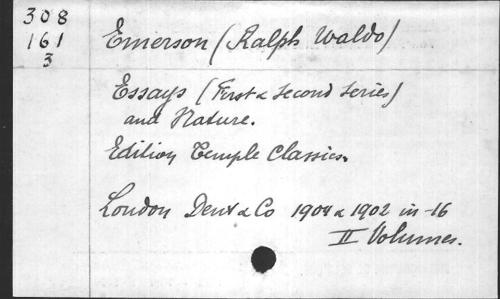 308
161
3
Emerson (Ralph Waldo)
Essays (First & Second Series)
and Nature.
Edition Temple Classics.
London Dent & Co 1904 & 1902 in-16
II Volumes.